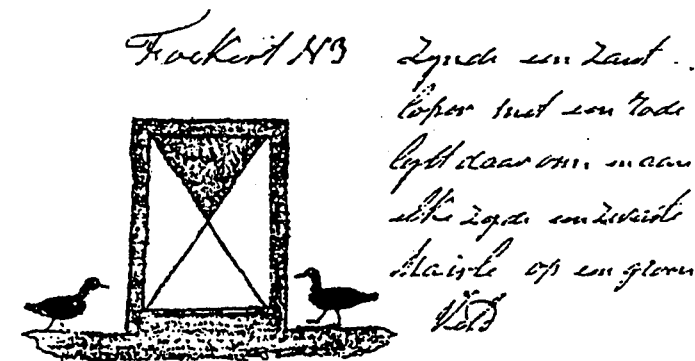 Foekert N3
Zynde een Zant
loper met een rode
lyst daar om en aan
elke zyde een zwarte
op een groen
Veld